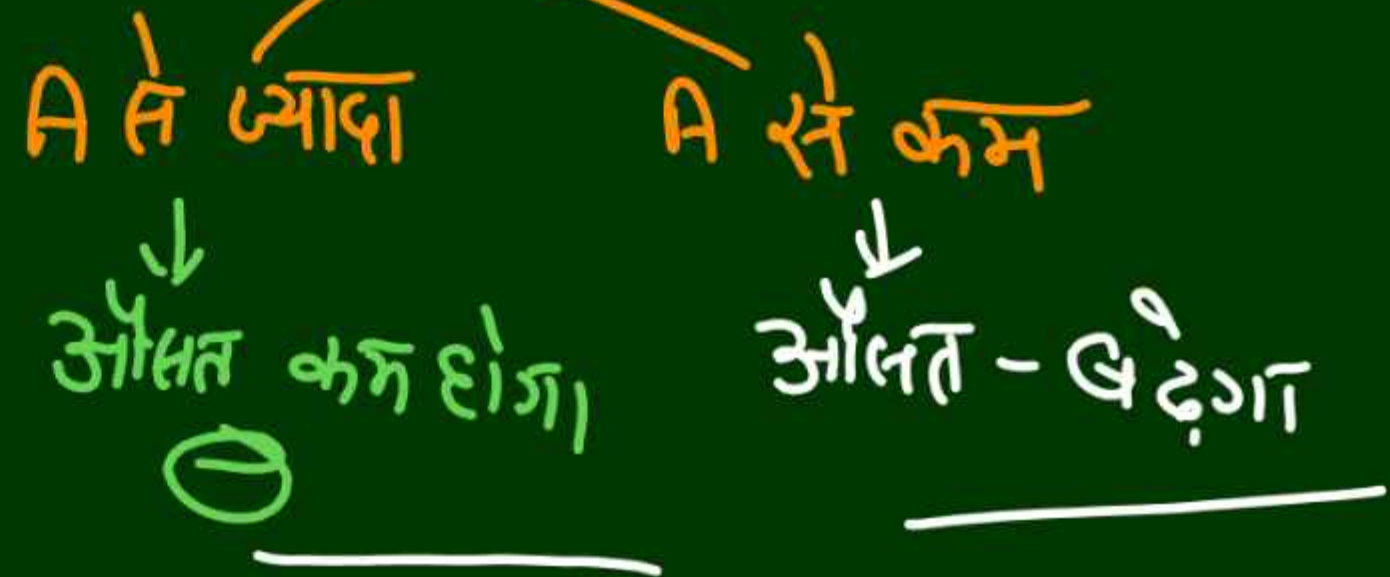 A से ज्यादा A से कम
औसत कम होगा औसत - बढ़ेगा